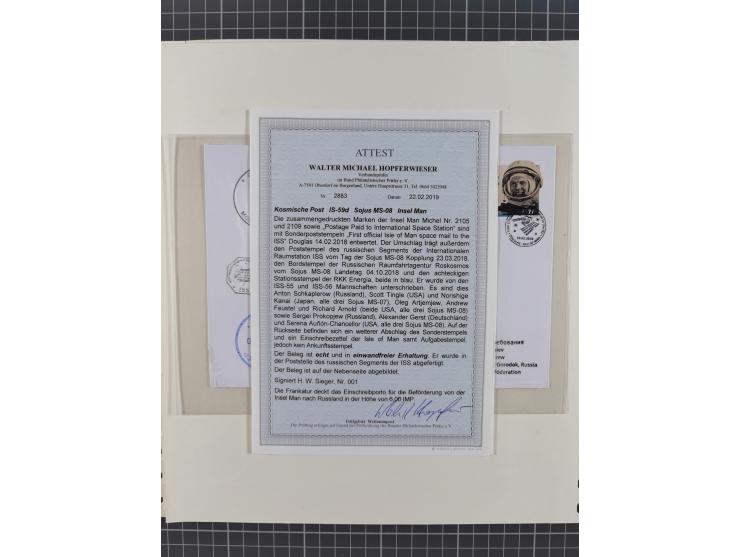 ATTEST
WALTER MICHAEL HOPFERWIESER
Verbandsprüfer
im Bund Philatelistischer Prüfer e. V.
Nr. 2883 Datum: 22.02.2019
Kosmische Post IS-59d Sojus MS-08 Insel Man
Die zusammengedruckten Marken der Insel Man Michel Nr. 2105
und 2109 sowie „Postage Paid to International Space Station" sind
mit Sonderpoststempeln „First official Isle of Man space mail to the
ISS" Douglas 14.02.2018 entwertet. Der Umschlag trägt außerdem
den Poststempel des russischen Segments der Internationalen
Raumstation ISS vom Tag der Sojus MS-08 Kopplung 23.03.2018,
den Bordstempel der Russischen Raumfahrtagentur Roskosmos
vom Sojus MS-08 Landetag 04.10.2018 und den achteckigen
Stationsstempel der RKK Energia, beide in blau. Er wurde von den
ISS-55 und ISS-56 Mannschaften unterschrieben. Es sind dies
Anton Schkaplerow (Russland), Scott Tingle (USA) und Norishige
Kanai (Japan, alle drei Sojus MS-07), Oleg Artjemjew, Andrew
Feustel und Richard Arnold (beide USA, alle drei Sojus MS-08)
sowie Sergei Prokopjew (Russland), Alexander Gerst (Deutschland)
und Serena Auñón-Chancellor (USA, alle drei Sojus MS-08). Auf der
Rückseite befinden sich ein weiterer Abschlag des Sonderstempels
und ein Einschreibezettel der Isle of Man samt Aufgabestempel,
jedoch kein Ankunftsstempel.
Der Beleg ist echt und in einwandfreier Erhaltung. Er wurde in
der Poststelle des russischen Segments der ISS abgefertigt.
Der Beleg ist auf der Nebenseite abgebildet.
Signiert H. W. Sieger, Nr. 001
Die Frankatur deckt das Einschreibporto für die Beförderung von der
Insel Man nach Russland in der Höhe von 6,00 IMP.
Gorodok, Russia